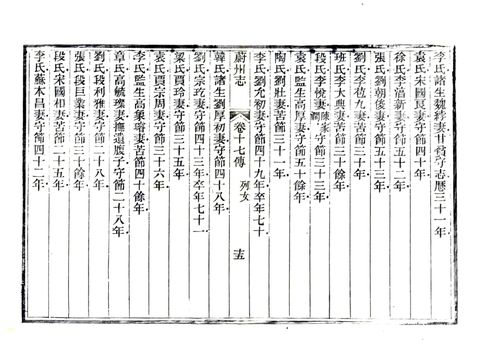 李氏諸生魏綍妻甘貧守志歷三十一年
袁氏宋國良妻守節六十年
徐氏李蒞新妻守節五十二年
張氏劉朝倰妻守節五十餘年
劉氏李苞九妻守節五十年
班氏李大典妻苦節三十年
段氏李悅妻守節三十三年
袁氏監生高厚妻守節五十餘年
陶氏劉壯妻苦節三十一年
李氏劉允初妻守節四十九年卒年七十
蔚州志
卷十七傳
列女
十五
韓氏諸生劉厚初妻守節四十八年
劉氏宗玫妻守節四十三年卒年七十一
梁氏賈玲妻守節三十五年
袁氏賈宗周妻守節三十六年
李氏監生高象瑤妻苦節四十餘年
章氏高毓璨妻撫遺腹子守節二十八年
劉氏段利雅妻守節三十八年
張氏段巨業妻守節三十餘年
段氏宋國相妻苦節四十年
李氏蘇本昌妻守節四十二年